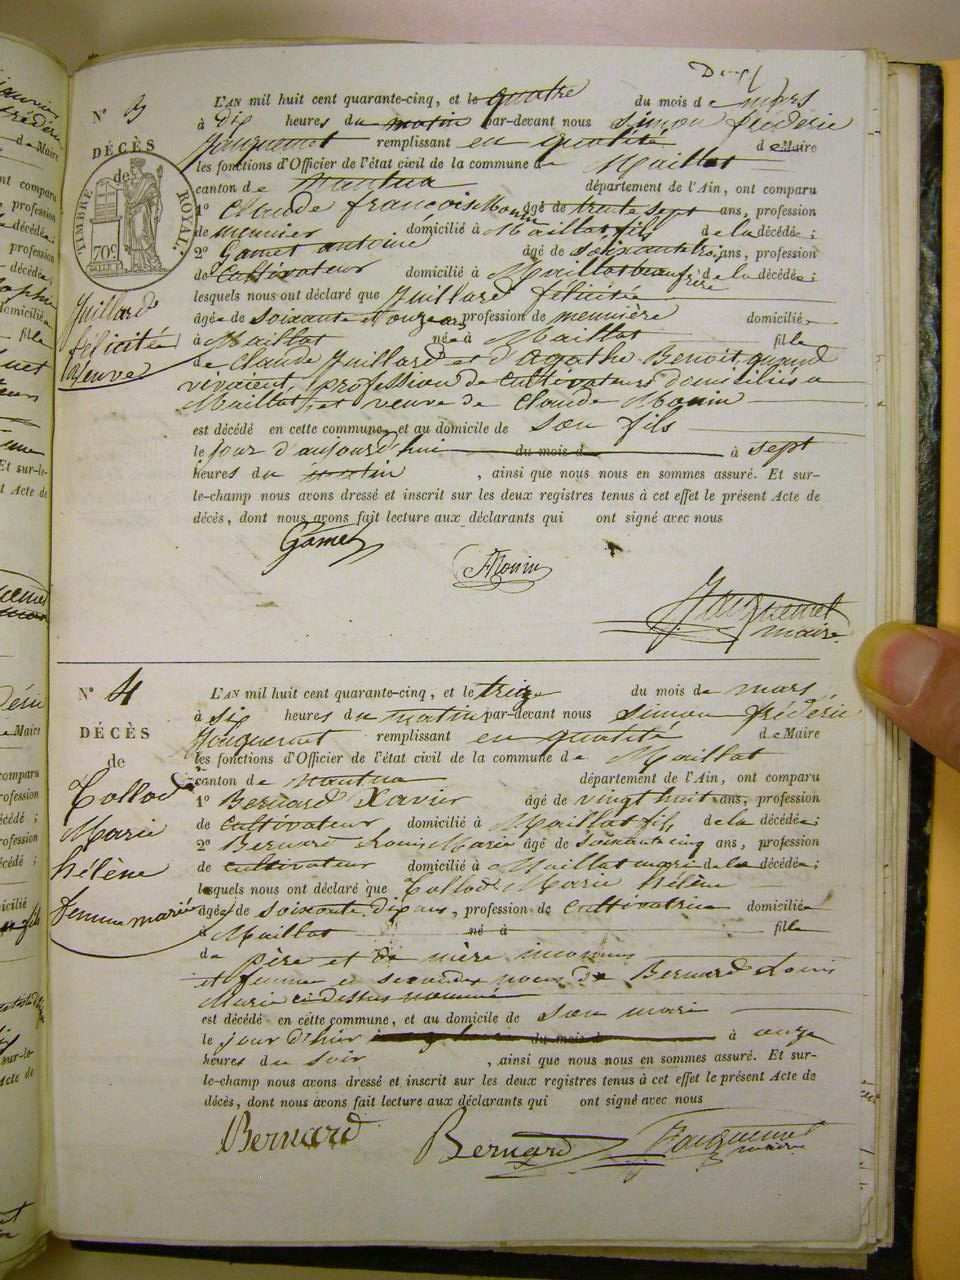 N° 3
DÉCÈS
de
TIMBRE ROYAL
70c
Juillard
félicité
veuve
L'AN mil huit cent quarante-cinq, et le quatre du mois de mars
à dix heures du matin par-devant nous Simon fréderic
Jouquemet remplissant en qualité de Maire
les fonctions d'Officier de l'état civil de la commune de Maillat
canton de nantua département de l'Ain, ont comparu
1° Claude françois Monin âgé de trente sept ans, profession
de meunier domicilié à Maillat fils de la décédée;
2° Gamet antoine âgé de soixante trois ans, profession
de Cultivateur domicilié à Maillat beaufrère de la décédée;
lesquels nous ont déclaré que Juillard félicité
âgée de soixante et onze ans, profession de meunière domiciliée
à Maillat née à Maillat fille
de Claude Juillard et d'agathe Benoit quand
vivaient, profession de cultivateurs domiciliés à
Maillat, et veuve de Claude Monin
est décédé en cette commune, et au domicile de son fils
le jour d'aujourd'hui du mois d à sept
heures du matin, ainsi que nous nous en sommes assuré. Et sur-
le-champ nous avons dressé et inscrit sur les deux registres tenus à cet effet le présent Acte de
décès, dont nous avons fait lecture aux déclarants qui ont signé avec nous
Gamet
Monin
Jouquemet
maire
N° 4
DÉCÈS
de
Tollod
Marie
hélène
femme mariée
L'AN mil huit cent quarante-cinq, et le treize du mois de mars
à six heures du matin par-devant nous Simon fréderic
Jouquemet remplissant en qualité de Maire
les fonctions d'Officier de l'état civil de la commune de Maillat
canton de nantua département de l'Ain, ont comparu
1° Bernard Xavier âgé de vingt huit ans, profession
de Cultivateur domicilié à Maillat fils de la décédée;
2° Bernard Louis Marie âgé de soixante cinq ans, profession
de Cultivateur domicilié à Maillat mari de la décédée;
lesquels nous ont déclaré que Tollod Marie hélène
âgée de soixante dix ans, profession de Cultivatrice domiciliée
à Maillat né à fille
de père et de mère inconnus
et femme en secondes noces de Bernard Louis
Marie ci dessus nommé
est décédé en cette commune, et au domicile de son mari
le jour d'hier du mois d à onze
heures du soir, ainsi que nous nous en sommes assuré. Et sur-
le-champ nous avons dressé et inscrit sur les deux registres tenus à cet effet le présent Acte de
décès, dont nous avons fait lecture aux déclarants qui ont signé avec nous
Bernard
Bernard
Jouquemet
maire